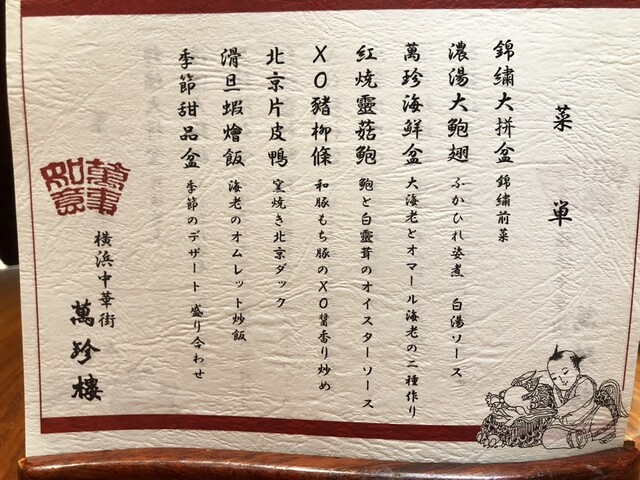 菜単
錦繡大拼盆 錦繡前菜
濃湯大鮑翅 ふかひれ姿煮 白湯ソース
萬珍海鮮盆 大海老とオマール海老の二種作り
紅燒靈菇鮑 鮑と白靈茸のオイスターソース
XO豬柳條 和豚もち豚のXO醬香り炒め
北京片皮鴨 窯焼き北京ダック
滑旦蝦燴飯 海老のオムレット炒飯
季節甜品盆 季節のデザート盛り合わせ
萬事如意
横浜中華街
萬珍樓